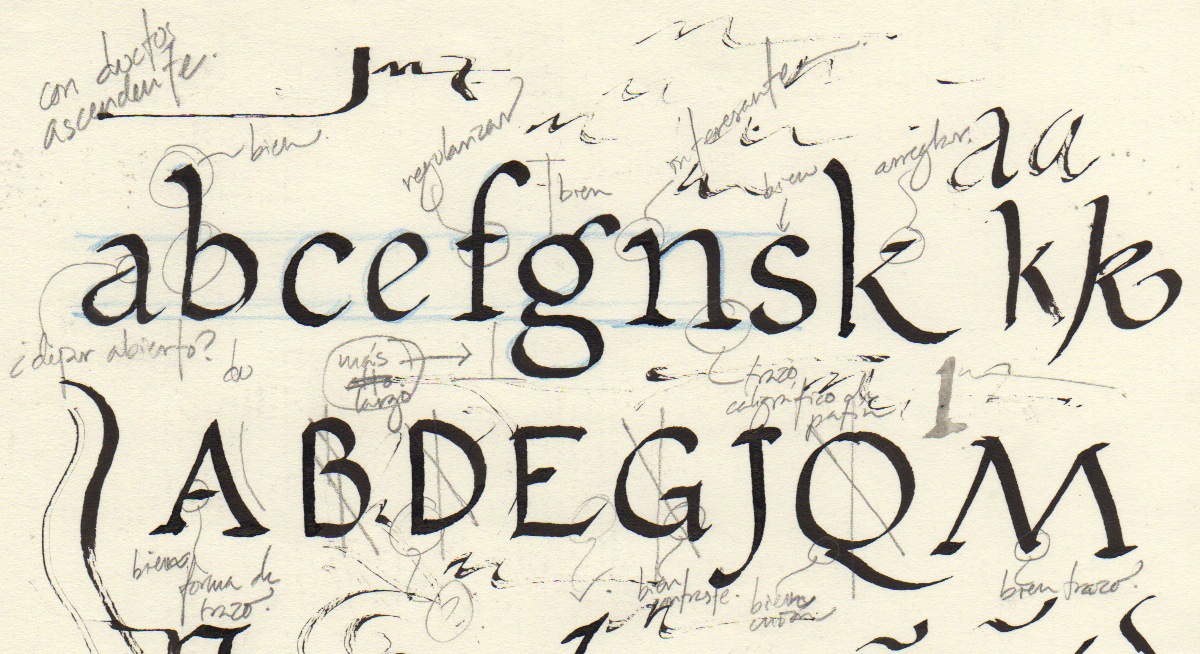 con ductos
ascendente.
bien
regularizar
bien
interesante
bien
arreglar.
aa
abcefgnsk kk
¿dejar abierto?
más
largo
trazo
caligráfico de
ABDEGJQM
bien
forma de
trazo.
bien
contraste.
bien
bien trazo.